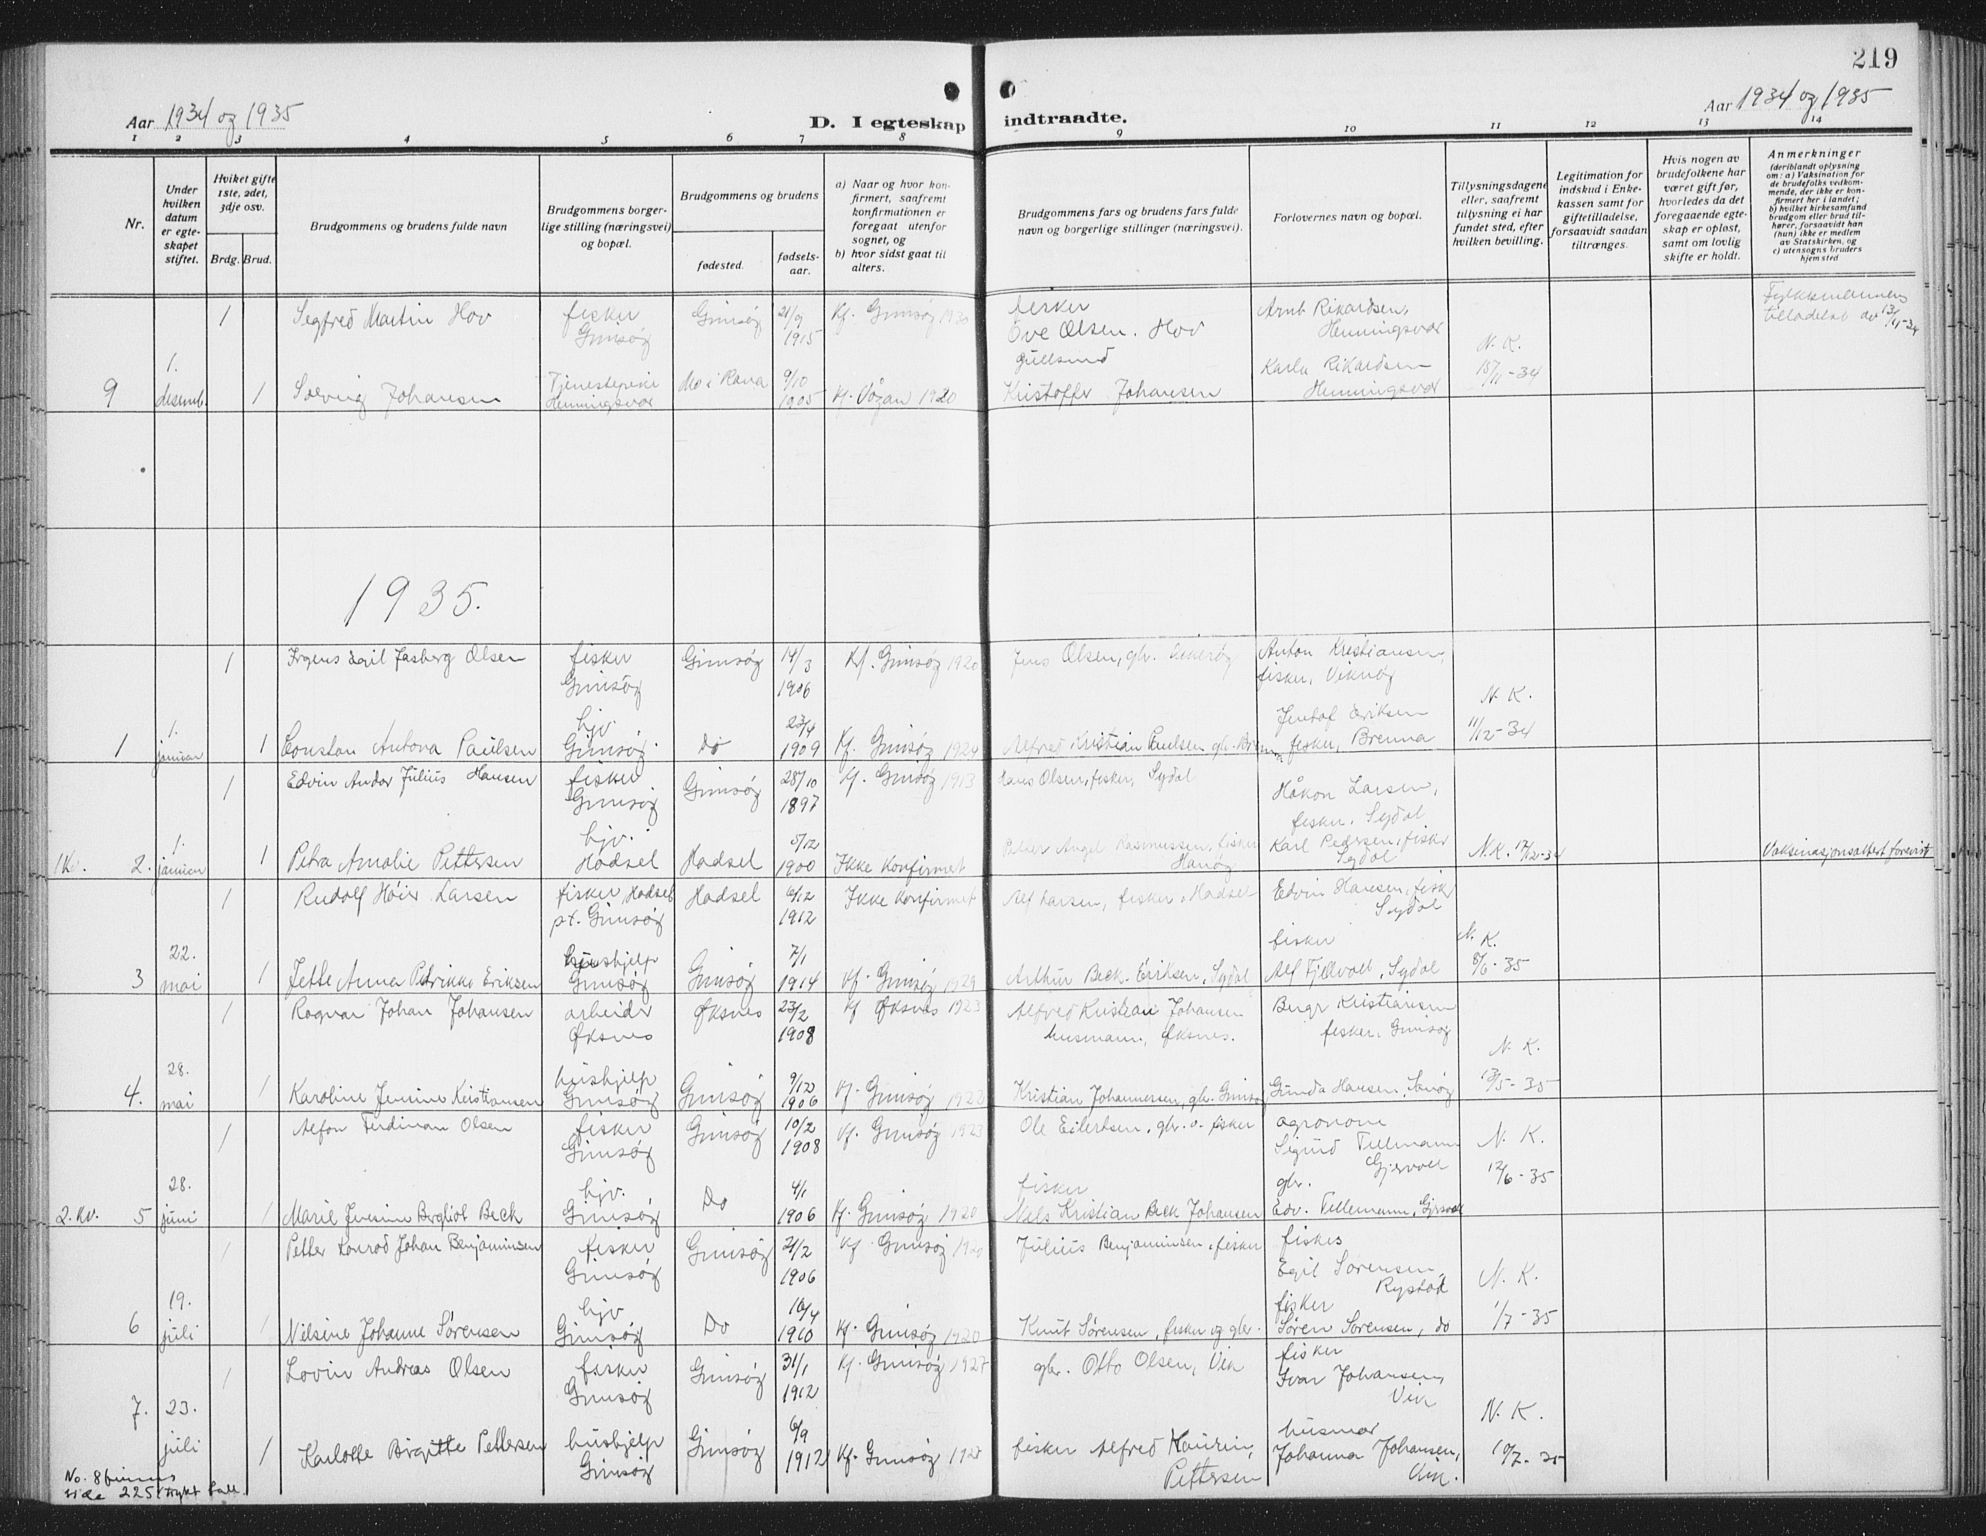 219
Aar 1934 og 1935
D. I egteskap indtraadte.
Aar 1934 og 1935
1 2 3 4 5 6 7 8 9 10 11 12 13 14
Nr.
Under hvilken datum er egteskapet stiftet.
Hviket gifte 1ste, 2det, 3dje osv.
Brdg. Brud.
Brudgommens og brudens fulde navn
Brudgommens borgerlige stilling (næringsvei) og bopæl.
Brudgommens og brudens
fødested.
fødselsaar.
a) Naar og hvor konfirmert, saafremt konfirmationen er foregaat utenfor sognet, og
b) hvor sidst gaat til alters.
Brudgommens fars og brudens fars fulde navn og borgerlige stillinger (næringsvei).
Forlovernes navn og bopæl.
Tillysningsdagene eller, saafremt tillysning ei har fundet sted, efter hvilken bevilling.
Legitimation for indskud i Enkekassen samt for giftetilladelse, forsaavidt saadan tiltrænges.
Hvis nogen av brudefolkene har været gift før, hvorledes da det foregaaende egteskap er opløst, samt om lovlig skifte er holdt.
Anmerkninger
(deriblandt oplysning om: a) Vaksination for de brudefolks vedkommende, der ikke er konfirmert her i landet; b) hvilket kirkesamfund brudgom eller brud tilhører, forsaavidt han (hun) ikke er medlem av Statskirken, og c) utensogns bruders hjemsted
1 Segfred Martin Hov fisker Gimsøy Gimsøy 21/9 1915 Kf. Gimsøy 1930 fisker Ove Olsen. Hov Arnt Rikardsen, Henningsvær Fylkesmannens tilladelse av 13/11-34
9 1. desemb. 1 Solveig Johansen Tjenestepike Henningsvær Mo i Rana 9/10 1905 Kf. Vågan 1920 Kristoffer Johansen Karla Rikardsen Henningsvær N.K. 15/11-34
1935.
1 Egil Jasberg Olsen fisker Gimsøy Gimsøy 14/3 1906 Kf. Gimsøy 1920 Jens Olsen, gbr. Anton Kristiansen, fisker, Viknøy
1 1. januar 1 Constan Antova Paulsen hjv. Gimsøy. Do 23/4 1909 Kf. Gimsøy 1924 Alfred Kristian Paulsen gbr. Eriksen fisker, Brenna N.K. 11/12-34
1 Edvin Andor Julius Hansen fisker Gimsøy Gimsøy 28/10 1897 Kf. Gimsøy 1913 Hans Olsen, fisker, Sydal Håkon Larsen, fisker. Sydal
1K. 2. 1. januar 1 Petra Amalie Pettersen hjv. Hadsel Hadsel 5/12 1900 Ikke Konfirmet Angel Rasmussen, fisker Hanøy Karl Pedersen, fisker Sydal N.K. 17/12-34 Vaksinasjonsattest forevist
1 Rudolf Høier Larsen fisker Hadsel pt. Gimsøy Hadsel 6/12 1912 Ikke Konfirmet Alf Larsen, fisker, Hadsel Edvin Hansen, fisk Sydal
3 22. mai 1 Jette Anna Petrikke Eriksen hushjelp Gimsøy Gimsøy 7/1 1914 Kf. Gimsøy 1929 Arthur Beck-Eriksen, Sydal fisker Alf Fjellvoll, Sydal N.K. 8/5-35
1 Ragnar Johan Johansen arbeider Øksnes Øksnes 23/2 1908 Kf Øksnes 1923 Alfred Kristian Johansen husmann, Øksnes. Kristiansen fisker, Gimsøy
4. 28. mai 1 Karoline Jensine Kristiansen hushjelp Gimsøy Gimsøy 9/12 1906 Kf. Gimsøy 1922 Kristian Johannersen, gbr. Gimsøy Gunda Hansen, N.K. 13/5-35
1 Alfon Ferdinan Olsen fisker Gimsøy Gimsøy 10/2 1908 Kf. Gimsøy 1923 Ole Eilertsen, gbr. o. fisker agronom Sigurd Tellmann Gjersvoll
2. Kv. 5 28. juni 1 Marie Jensine Bergliot Beck hjv. Gimsøy Do 4/1 1906 Kf. Gimsøy 1920 fisker Nils Kristian Beck Johansen gbr. Edv. Tellemann, Gjersvoll N.K. 12/6-35
1 Petter Konrad Johan Benjaminsen fisker Gimsøy Gimsøy 21/2 1906 Kf. Gimsøy 1920 Julius Benjaminsen, fisker fisker Egil Sørensen, Rystad
6 19. juli 1 Nilsine Johanne Sørensen hjv Gimsøy Do 16/4 1910 Kf. Gimsøy 1920 Knut Sørensen, fisker og gbr. fisker Søren Sørensen, do N.K. 1/7-35
1 Lovin Andreas Olsen fisker Gimsøy Gimsøy 31/1 1912 Kf. Gimsøy 1927 gbr. Otto Olsen, Vik fisker Ivar Johansen, Vik
7. 23. juli 1 Karlotte Birgitte Pettersen hushjelp Gimsøy Gimsøy 6/9 1912 Kf. Gimsøy fisker Alfred Haurin, Pettersen husmor Johanna Johansen, Vik. N.K. 10/7-35
No. 8 finnes side 225 trykt tall.